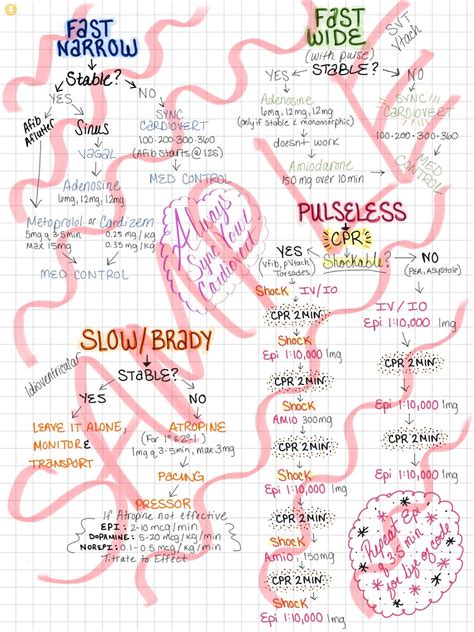 FAST
NARROW
Stable?
YES
NO
Afib
Aflutter
Sinus
VAGAL
Adenosine
6mg, 12mg, 12mg
SYNC
CARDIOVERT
100·200·300·360
(Afib Starts @ 125)
MED CONTROL
Metoprolol or Cardizem
5mg q 3-5min
Max 15mg
0.25 mg/kg
0.35 mg/kg
MED CONTROL
Always
Sync Your
Cardiovert
FAST
WIDE
(with pulse)
STABLE?
SVT
Vtach
YES
NO
Adenosine
6mg, 12mg, 12mg
(only if stable & monomorphic)
doesn't work
Amiodarone
150mg over 10min
SYNC!!!
CARDIOVERT
100·200·300·360
MED
CONTROL
PULSELESS
CPR
Shockable?
YES
(Vfib, pVtach,
Torsades)
NO
(PEA, Asystole)
Shock
IV/IO
CPR 2MIN
Shock
Epi 1:10,000 1mg
CPR 2MIN
Shock
Amio 300mg
CPR 2MIN
Shock
Epi 1:10,000 1mg
CPR 2MIN
Shock
Amio 150mg
CPR 2MIN
Shock
Epi 1:10,000 1mg
IV/IO
Epi 1:10,000 1mg
CPR 2MIN
Epi 1:10,000 1mg
CPR 2MIN
Epi 1:10,000 1mg
Repeat Epi
q 3-5 min
for life of
code
SLOW/BRADY
STABLE?
Idioventricular
YES
NO
LEAVE IT ALONE,
MONITOR &
TRANSPORT
ATROPINE
(For 1° & 2° I)
1mg q 3-5min, max 3mg
PACING
PRESSOR
If Atropine not effective
EPI: 2-10 mcg/min
DOPAMINE: 5-20 mcg/kg/min
NOREPI: 0.1-0.5 mcg/kg/min
Titrate to Effect